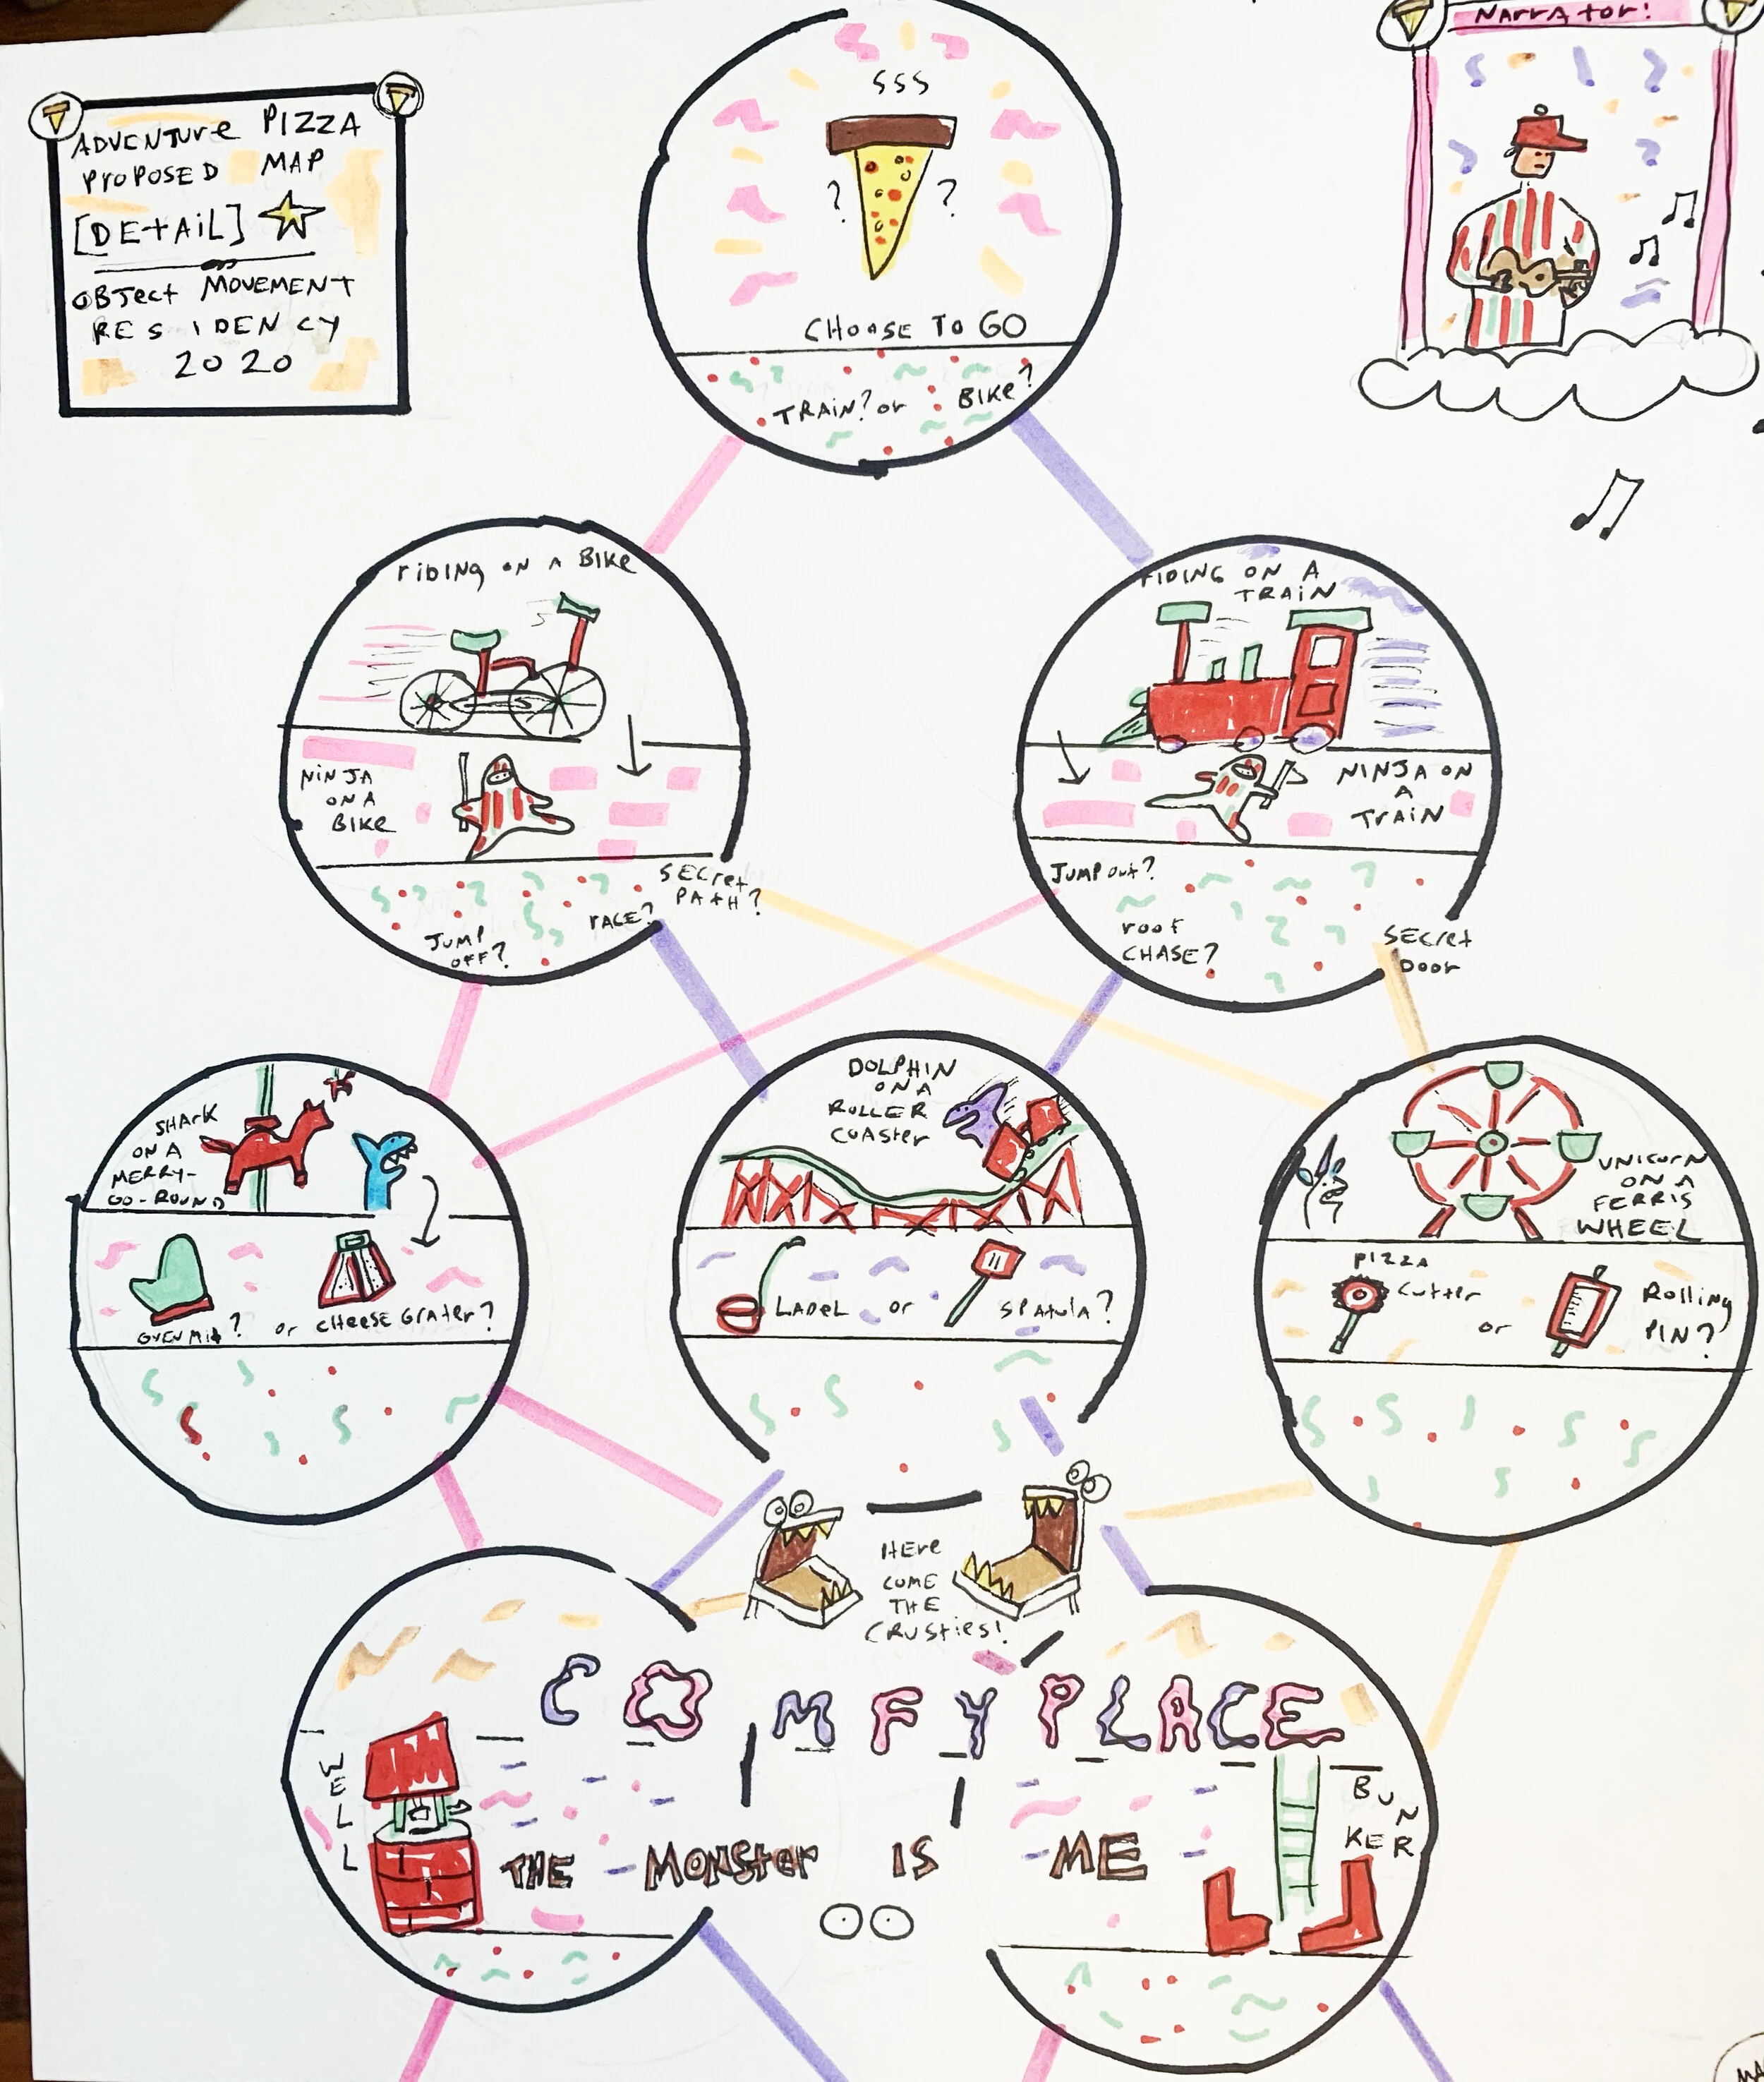 ADVENTURE PIZZA
PROPOSED MAP
[DETAIL]
OBJECT MOVEMENT
RESIDENCY
2020
SSS
? ?
CHOOSE TO GO
TRAIN? or BIKE?
NARRATOR!
riDING ON A BIKE
NINJA
ON A
BIKE
SECret
PATH?
rACE?
JUMP
OFF?
riDING ON A
TRAIN
NINJA ON
A
TrAiN
JUMP OUT?
rOOF
CHASE?
SECret
DOOr
SHARK
ON A
MERRY-
GO-ROUND
OVEN Mit? or CHEESE GrATEr?
DOLPHIN
ON A
ROLLER
COASTER
LADEL or SPATULA?
UNICORN
ON A
FERRIS
WHEEL
PIZZA
CUTTER
or
ROLLING
PIN?
HERE
COME
THE
CRUSTIES!
COMFY PLACE
WELL
BUNKER
THE MONSTER IS ME